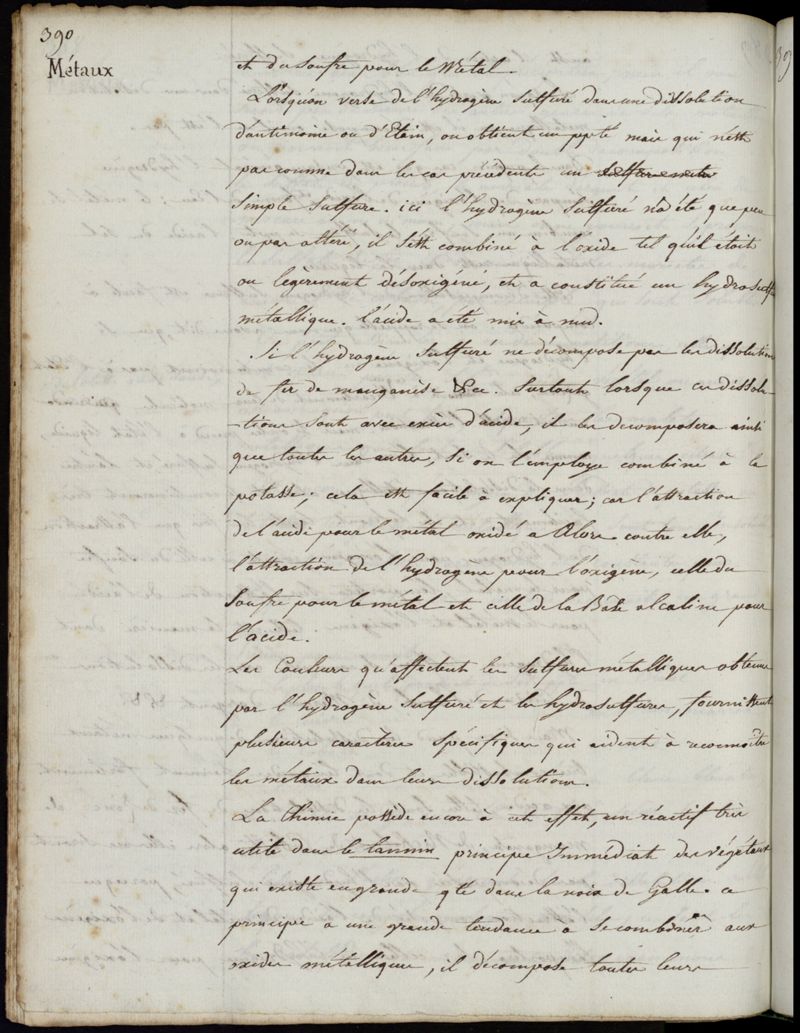 390
Métaux
et du soufre pour le Métal.
Lorsqu'on verse de l'hydrogène sulfuré dans une dissolution
d'antimoine ou d'Etain, on obtient un ppté mais qui n'est
pas comme dans les cas précédents un
simple sulfure. ici l'hydrogène sulfuré n'a été que peu
ou pas altéré, il s'est combiné à l'oxide tel qu'il était
ou légèrement désoxigéné, et a constitué un hydrosulfure
métallique. l'acide a été mis à nud.
Si l'hydrogène sulfuré ne décompose pas les dissolutions
de fer de manganèse &ce. surtout lorsque ces dissolu-
-tions sont avec excès d'acide, il les decomposera ainsi
que toutes les autres, si on l'employe combiné à la
potasse; cela est facile à expliquer; car l'attraction
de l'acide pour le métal oxidé a Alors contre elle,
l'attraction de l'hydrogène pour l'oxigène, celle du
soufre pour le métal et celle de la Base alcaline pour
l'acide.
Les Couleurs qu'affectent les sulfures métalliques obtenus
par l'hydrogène sulfuré et les hydrosulfures, fournissent
plusieurs caractères spécifiques qui aident à reconnoître
les métaux dans leurs dissolutions.
La Chimie possède encore à cet effet, un réactif très
utile dans le tannin principe Immédiat des végétaux
qui existe en grande qté dans la noix de Galle. ce
principe a une grande tendance à se combiner aux
oxides métalliques, il décompose toutes leurs